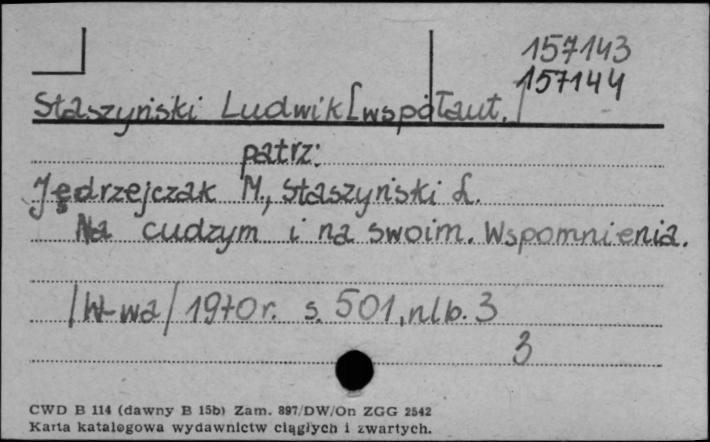 157143
157144
Staszyński Ludwik [współaut.]
patrz:
Jędrzejczak M., Staszyński L.
Na cudzym i na swoim. Wspomnienia.
/W-wa/ 1970r. s. 501, nlb. 3
3
CWD B 114 (dawny B 15b) Zam. 897/DW/On ZGG 2542
Karta katalogowa wydawnictw ciągłych i zwartych.